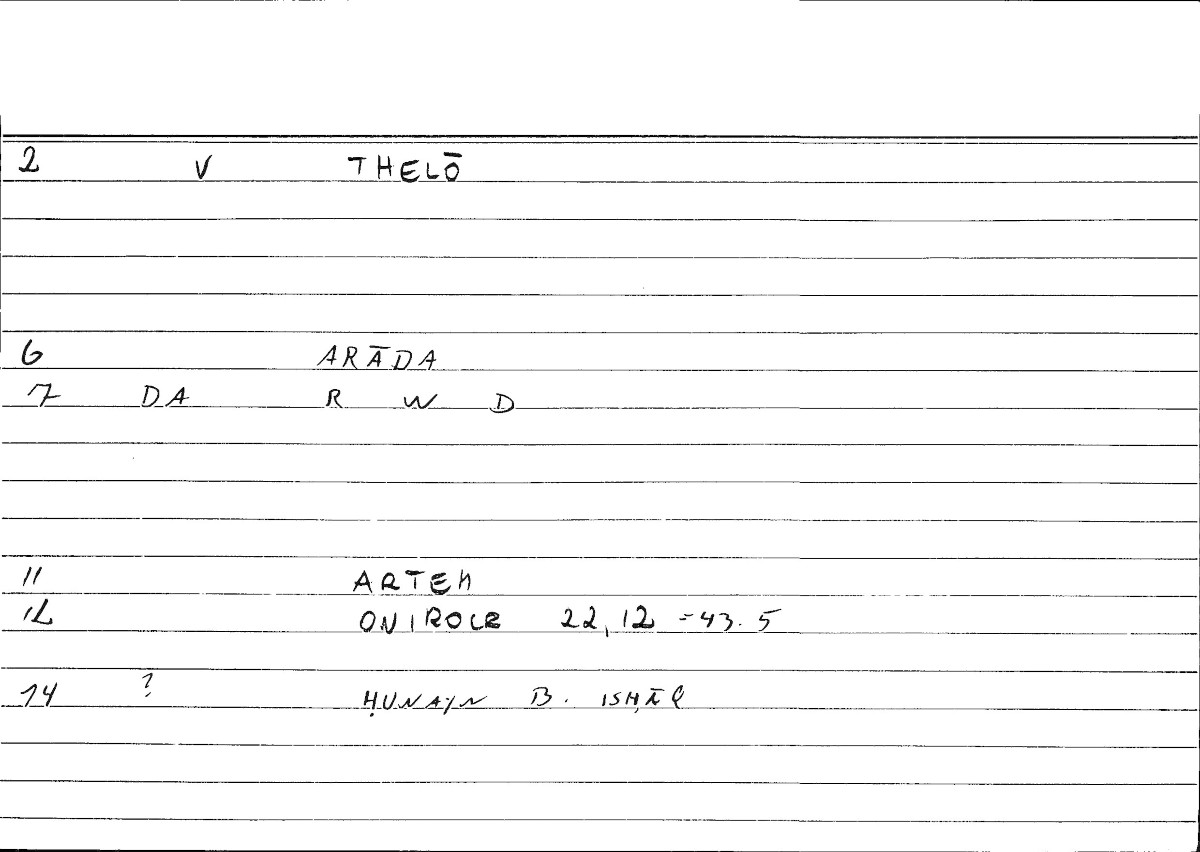 2 V THELŌ
6 ARĀDA
7 DA R W D
11 ARTEM
12 ONIROCR 22,12 = 43.5
14 ? ḤUNAYN B. ISḤĀQ